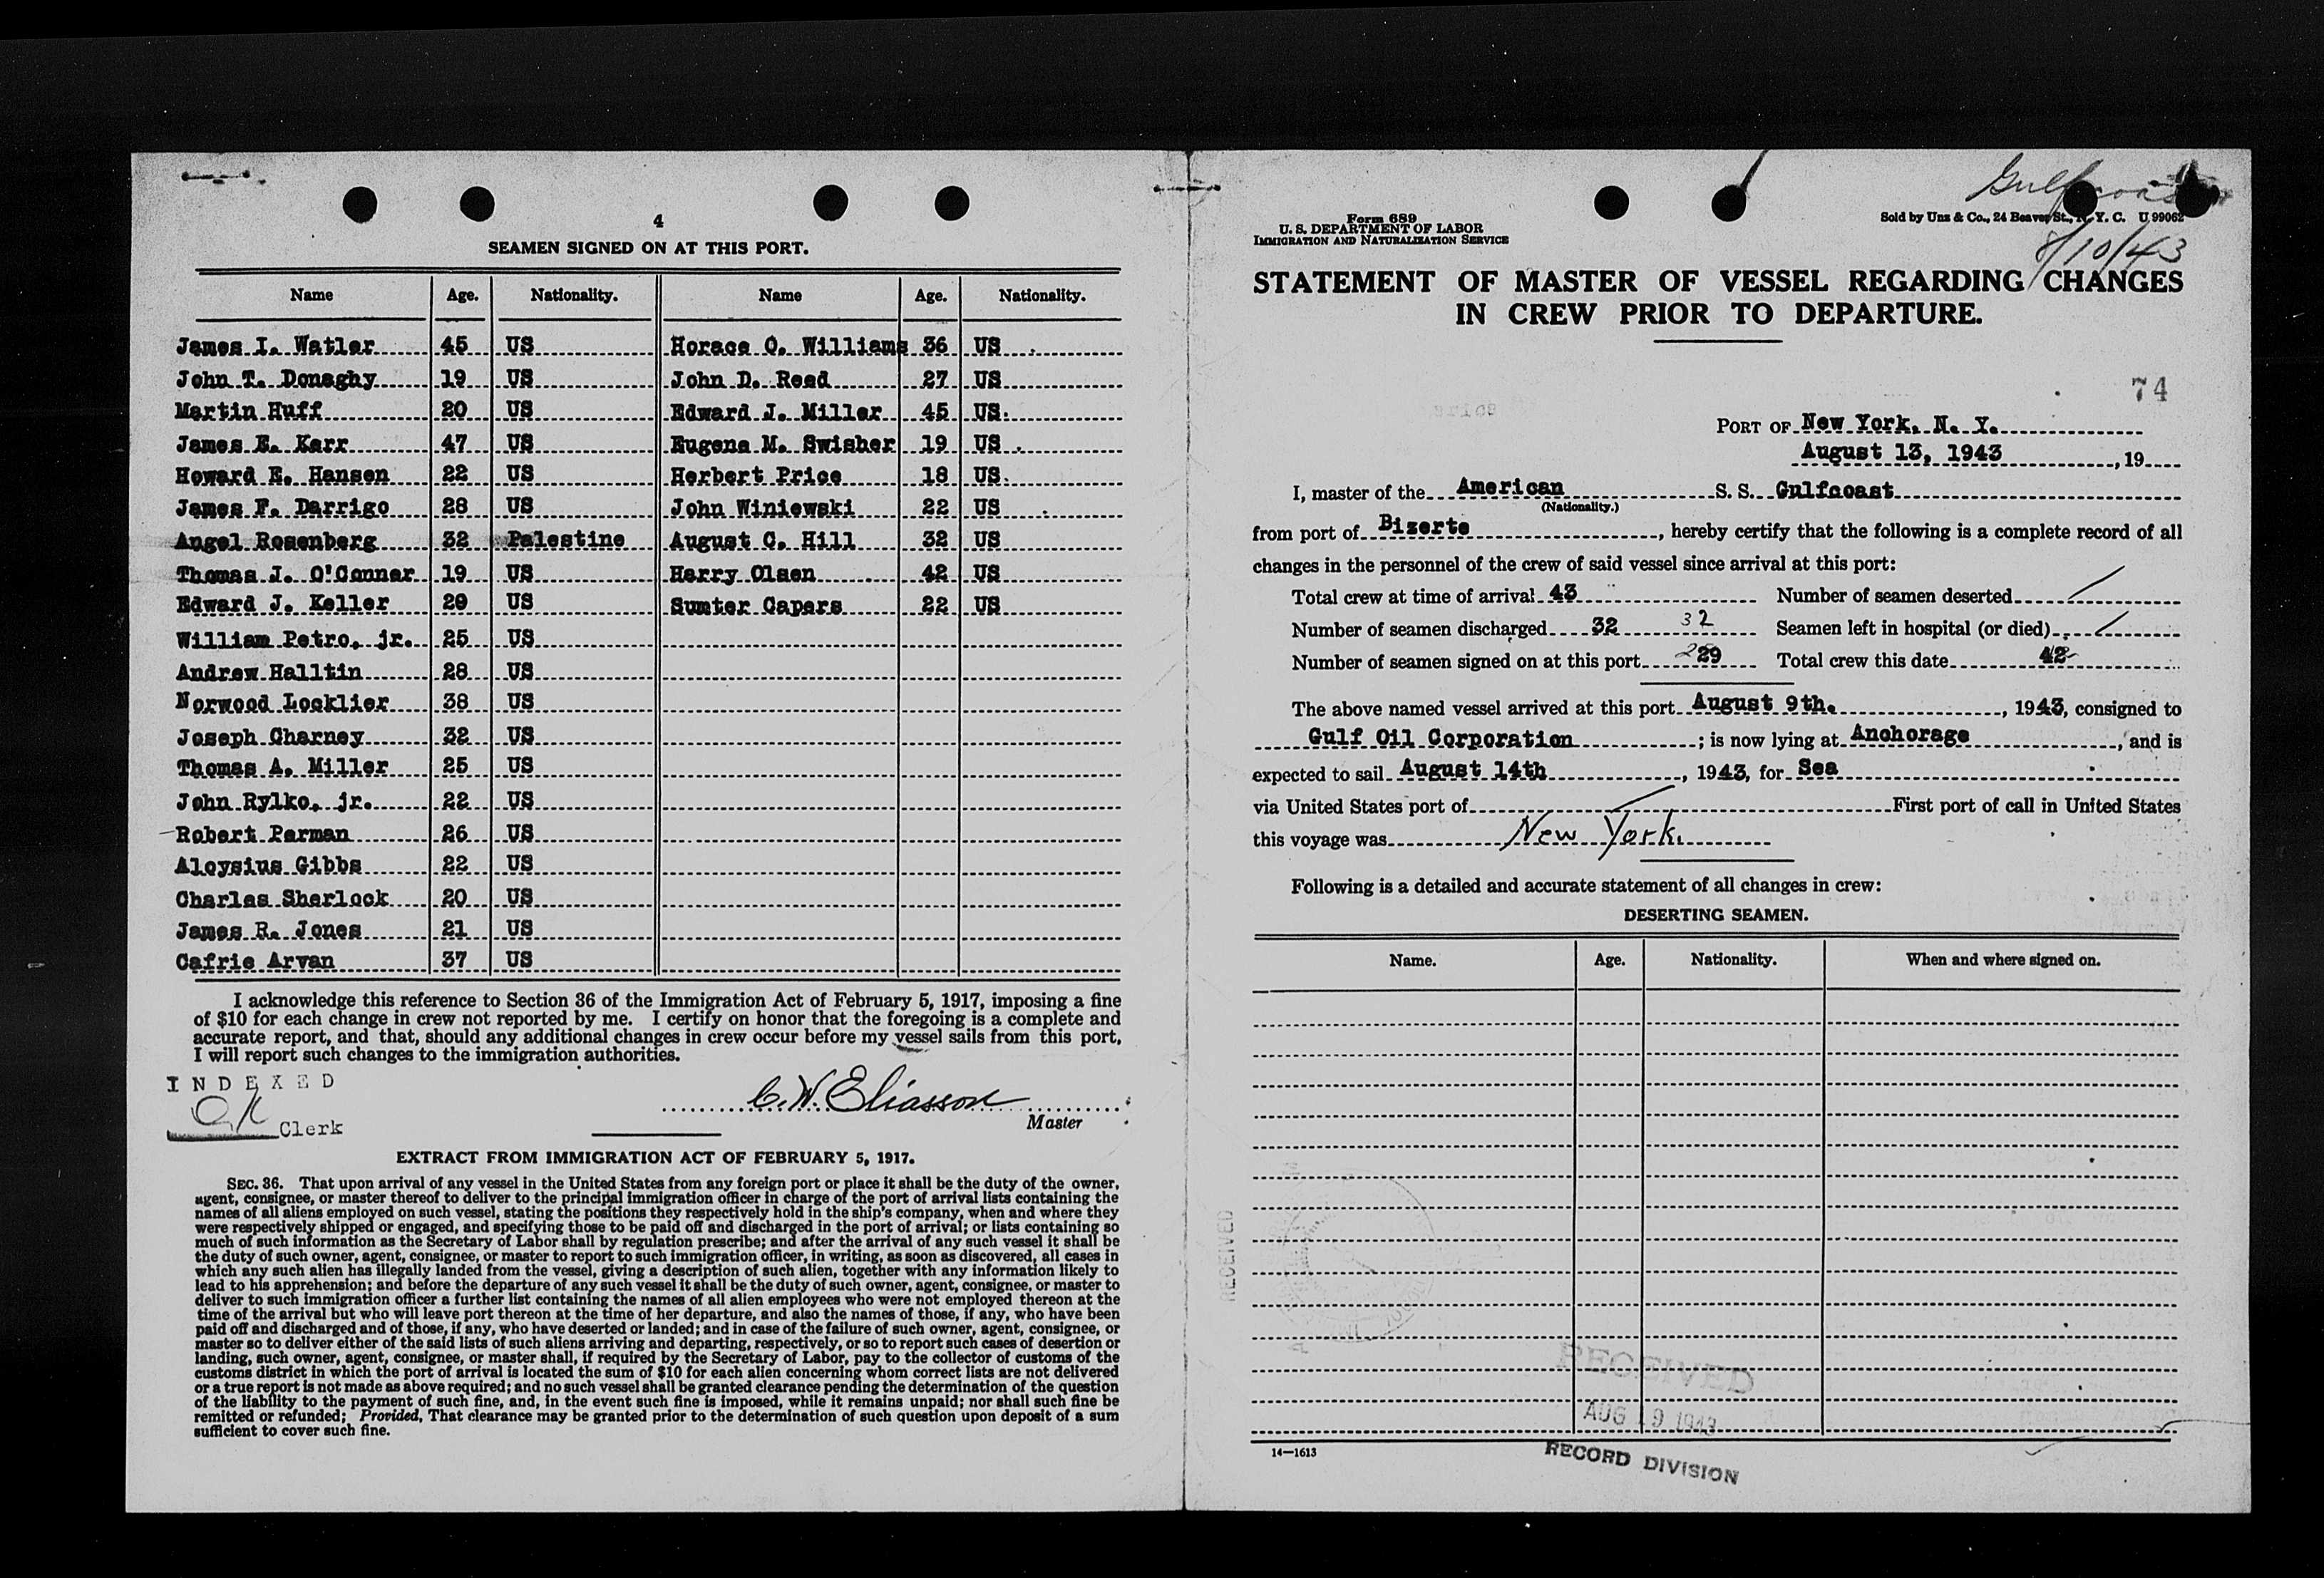 4
SEAMEN SIGNED ON AT THIS PORT.
Name Age. Nationality. Name Age. Nationality.
James I. Watler 45 US Horace O. Williams 36 US
John T. Donaghy 19 US John D. Reed 27 US
Martin Huff 20 US Edward J. Miller 45 US
James E. Karr 47 US Eugene M. Swisher 19 US
Howard E. Hansen 22 US Herbert Price 18 US
James F. Darrigo 28 US John Winiewski 22 US
Angel Rosenberg 32 Palestine August C. Hill 32 US
Thomas J. O'Connor 19 US Harry Olsen 42 US
Edward J. Keller 20 US Sumter Capers 22 US
William Petro, jr. 25 US
Andrew Halltin 28 US
Norwood Locklier 38 US
Joseph Charney 32 US
Thomas A. Miller 25 US
John Rylko, jr. 22 US
Robert Perman 26 US
Aloysius Gibbs 22 US
Charles Sherlock 20 US
James R. Jones 21 US
Cafrie Arvan 37 US
I acknowledge this reference to Section 36 of the Immigration Act of February 5, 1917, imposing a fine
of $10 for each change in crew not reported by me. I certify on honor that the foregoing is a complete and
accurate report, and that, should any additional changes in crew occur before my vessel sails from this port,
I will report such changes to the immigration authorities.
INDEXED
Clerk
C. W. Eliasson
Master
EXTRACT FROM IMMIGRATION ACT OF FEBRUARY 5, 1917.
SEC. 36. That upon arrival of any vessel in the United States from any foreign port or place it shall be the duty of the owner,
agent, consignee, or master thereof to deliver to the principal immigration officer in charge of the port of arrival lists containing the
names of all aliens employed on such vessel, stating the positions they respectively hold in the ship's company, when and where they
were respectively shipped or engaged, and specifying those to be paid off and discharged in the port of arrival; or lists containing so
much of such information as the Secretary of Labor shall by regulation prescribe; and after the arrival of any such vessel it shall be
the duty of such owner, agent, consignee, or master to report to such immigration officer, in writing, as soon as discovered, all cases in
which any such alien has illegally landed from the vessel, giving a description of such alien, together with any information likely to
lead to his apprehension; and before the departure of any such vessel it shall be the duty of such owner, agent, consignee, or master to
deliver to such immigration officer a further list containing the names of all alien employees who were not employed thereon at the
time of the arrival but who will leave port thereon at the time of her departure, and also the names of those, if any, who have been
paid off and discharged and of those, if any, who have deserted or landed; and in case of the failure of such owner, agent, consignee, or
master so to deliver either of the said lists of such aliens arriving and departing, respectively, or so to report such cases of desertion or
landing, such owner, agent, consignee, or master shall, if required by the Secretary of Labor, pay to the collector of customs of the
customs district in which the port of arrival is located the sum of $10 for each alien concerning whom correct lists are not delivered
or a true report is not made as above required; and no such vessel shall be granted clearance pending the determination of the question
of the liability to the payment of such fine, and, in the event such fine is imposed, while it remains unpaid; nor shall such fine be
remitted or refunded; Provided, That clearance may be granted prior to the determination of such question upon deposit of a sum
sufficient to cover such fine.
Gulfcoast
Form 689
U. S. DEPARTMENT OF LABOR
IMMIGRATION AND NATURALIZATION SERVICE
Sold by Unz & Co., 24 Beaver St., N. Y. C. U 99062
8/10/43
STATEMENT OF MASTER OF VESSEL REGARDING CHANGES
IN CREW PRIOR TO DEPARTURE.
74
PORT OF New York, N. Y.
August 13, 1943, 19
I, master of the American S. S. Gulfcoast
(Nationality.)
from port of Bizerte, hereby certify that the following is a complete record of all
changes in the personnel of the crew of said vessel since arrival at this port:
Total crew at time of arrival 43 Number of seamen deserted
Number of seamen discharged 32 32 Seamen left in hospital (or died)
Number of seamen signed on at this port 29 Total crew this date 42
The above named vessel arrived at this port August 9th, 1943, consigned to
Gulf Oil Corporation; is now lying at Anchorage, and is
expected to sail August 14th, 1943, for Sea
via United States port of First port of call in United States
this voyage was New York.
Following is a detailed and accurate statement of all changes in crew:
DESERTING SEAMEN.
Name. Age. Nationality. When and where signed on.
RECEIVED
RECEIVED
AUG 19 1943
RECORD DIVISION
14—1613